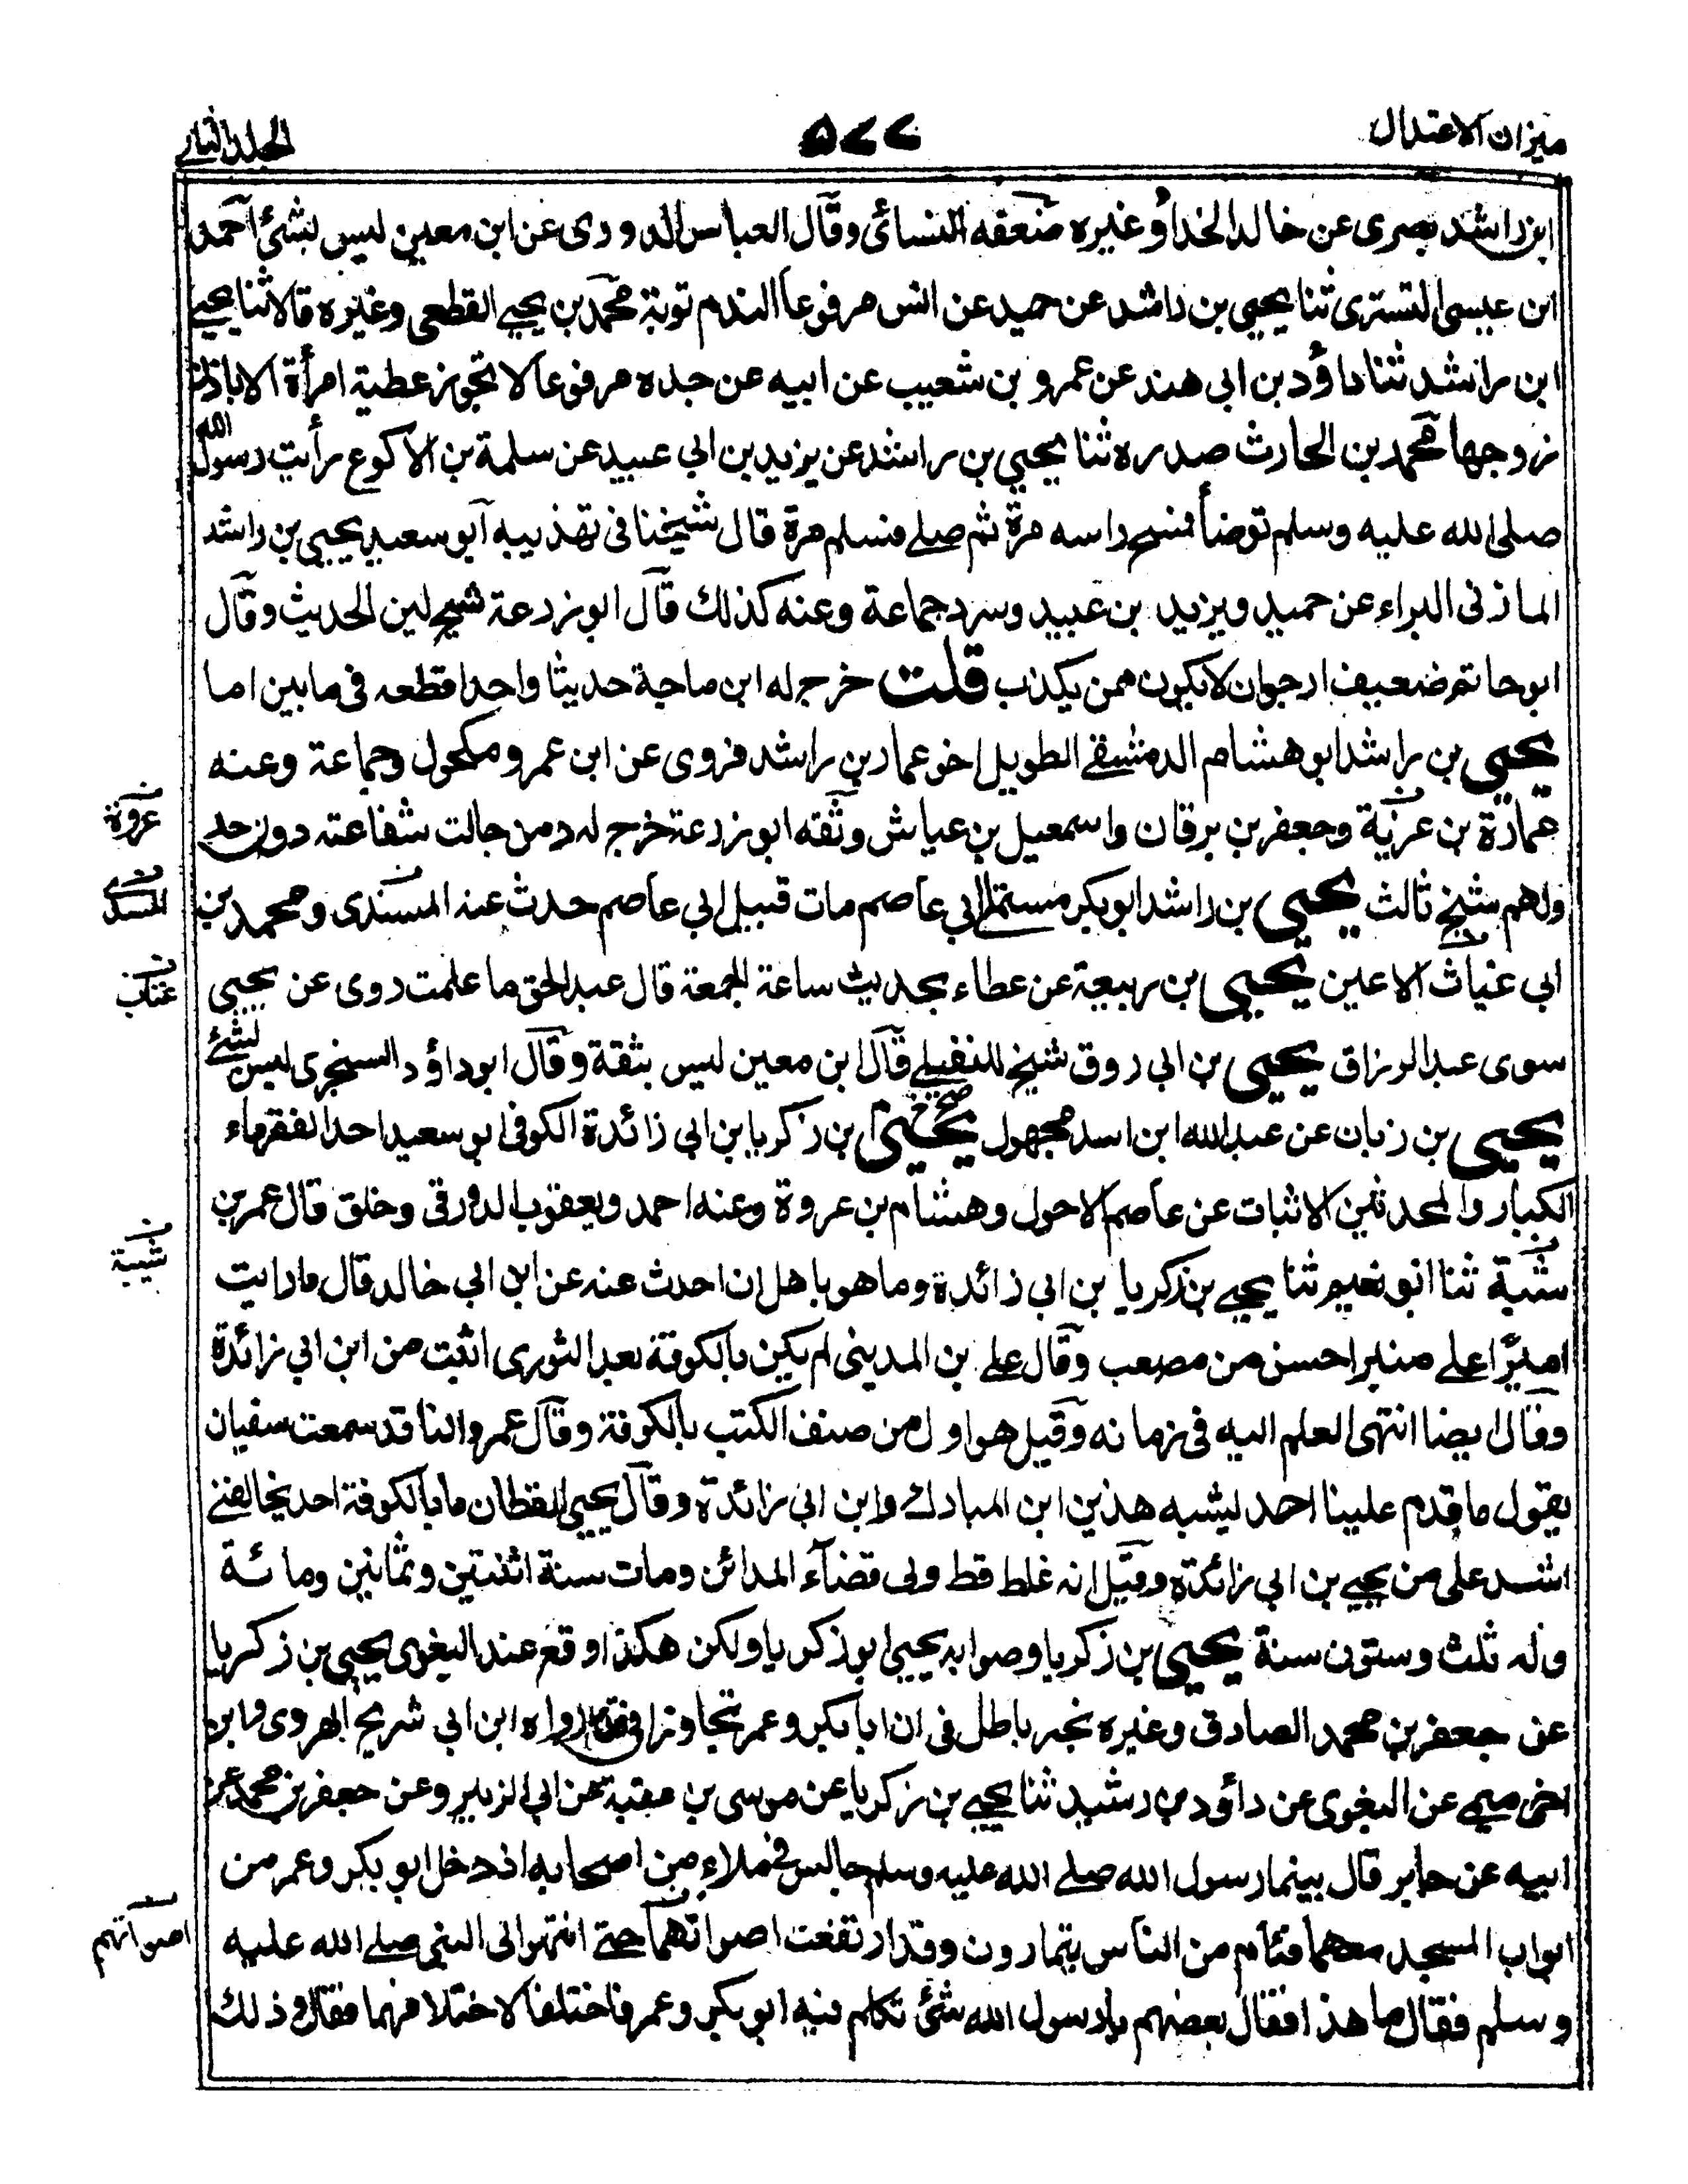 ميزان الاعتدال
٥٧٧
المجلد الثاني
ابن راشد بصرى عن خالد الحذاؤ وغيره ضعفه النسائى وقال العباس الدورى عن ابن معين ليس بشئ احمد
ابن عيسى التسترى ثنا يحيى بن راشد عن حميد عن انس مرفوعا الندم توبة محمد بن يحيى القطعى وغيره قالا ثنا يحيى
ابن راشد ثنا داؤد بن ابى هند عن عمرو بن شعيب عن ابيه عن جده مرفوعا لا تجوز عطية امرأة الا باذن
زوجها محمد بن الحارث صدره ثنا يحيى بن راشد عن يزيد بن ابى عبيد عن سلمة بن الاكوع رأيت رسول الله
صلى الله عليه وسلم توضأ فمسح راسه مرة ثم صلے فسلم مرة قال شيخنا فى تهذيبه ابو سعيد يحيى بن راشد
المازنى البراء عن حميد ويزيد بن عبيد وسرد جماعة وعنه كذلك قال ابو زرعة شيخ لين الحديث وقال
ابو حاتم ضعيف ارجوان لا يكون ممن يكذب قلت خرج له ابن ماجة حديثا واحدا قطعه فى مابين اما
يحيى بن راشد ابو هشام الدمشقے الطويل اخو عمار بن راشد فروى عن ابن عمر ومكحول وجماعة وعنه
عمارة بن غزية وجعفر بن برقان واسمعيل بن عياش وثقه ابو زرعة خرج له د من حالت شفاعته دون حد
ولهم شيخ ثالث يحيى بن راشد ابو بكر مستملے ابى عاصم مات قبيل ابى عاصم حدث عنه المسندى ومحمد بن
ابى غياث الاعين يحيى بن ربيعة عن عطاء بحديث ساعة الجمعة قال عبد الحق ما علمت روى عن يحيى
سوى عبد الرزاق يحيى بن ابى روق شيخ للنفيلے قال ابن معين ليس بثقة وقال ابو داؤد السنجرى ليس بشئ
يحيى بن زبان عن عبد الله ابن اسد مجهول يحيى بن زكريا بن ابى زائدة الكوفى ابو سعيد احد الفقهاء
الكبار والمحدثين الاثبات عن عاصم الاحول وهشام بن عروة وعنه احمد ويعقوب الدورقى وخلق قال عمر بن
شبة ثنا ابو نعيم ثنا يحيى بن زكريا بن ابى زائدة وما هو باهل ان احدث عنه عن ابن ابى خالد قال ما رايت
اميرا علے منبر احسن من مصعب وقال علے بن المدينى لم يكن بالكوفة بعد الثورى اثبت من ابن ابى زائدة
وقال ايضا انتهى العلم اليه فى زمانه وقيل هو اول من صنف الكتب بالكوفة وقال عمرو الناقد سمعت سفيان
يقول ما قدم علينا احد يشبه هذين ابن المبارك وابن ابى زائدة وقال يحيى القطان ما بالكوفة احد يخالفنے
اشد على من يحيى بن ابى زائدة وقيل انه غلط قط ولى قضاء المدائن ومات سنة اثنتين وثمانين ومائة
وله ثلث وستون سنة يحيى بن زكريا وصوابه يحيى ابو زكريا ولكن هكذا وقع عند البغوى يحيى بن زكريا
عن جعفر بن محمد الصادق وغيره بخبر باطل فى ان ابا بكر وعمر تجاوزا فى رواه ابن ابى شريح الهروى وابن
اخى ميمى عن البغوى عن داؤد بن رشيد ثنا يحيى بن زكريا عن موسى بن عقبة عن ابى الزبير وعن جعفر بن محمد عن
ابيه عن جابر قال بينما رسول الله صلے الله عليه وسلم جالس فى ملاء من اصحابه اذ دخل ابو بكر وعمر من
ابواب المسجد معهما فئام من الناس يتمارون وقد ارتفعت اصواتهما حتے انتهوا الى النبى صلے الله عليه
وسلم فقال ما هذا فقال بعضهم يا رسول الله شئ تكلم فيه ابو بكر وعمر فاختلفا لاختلافهما فقال وذلك
عروة
المسندے
عتاب
شيبة
اصواتهم